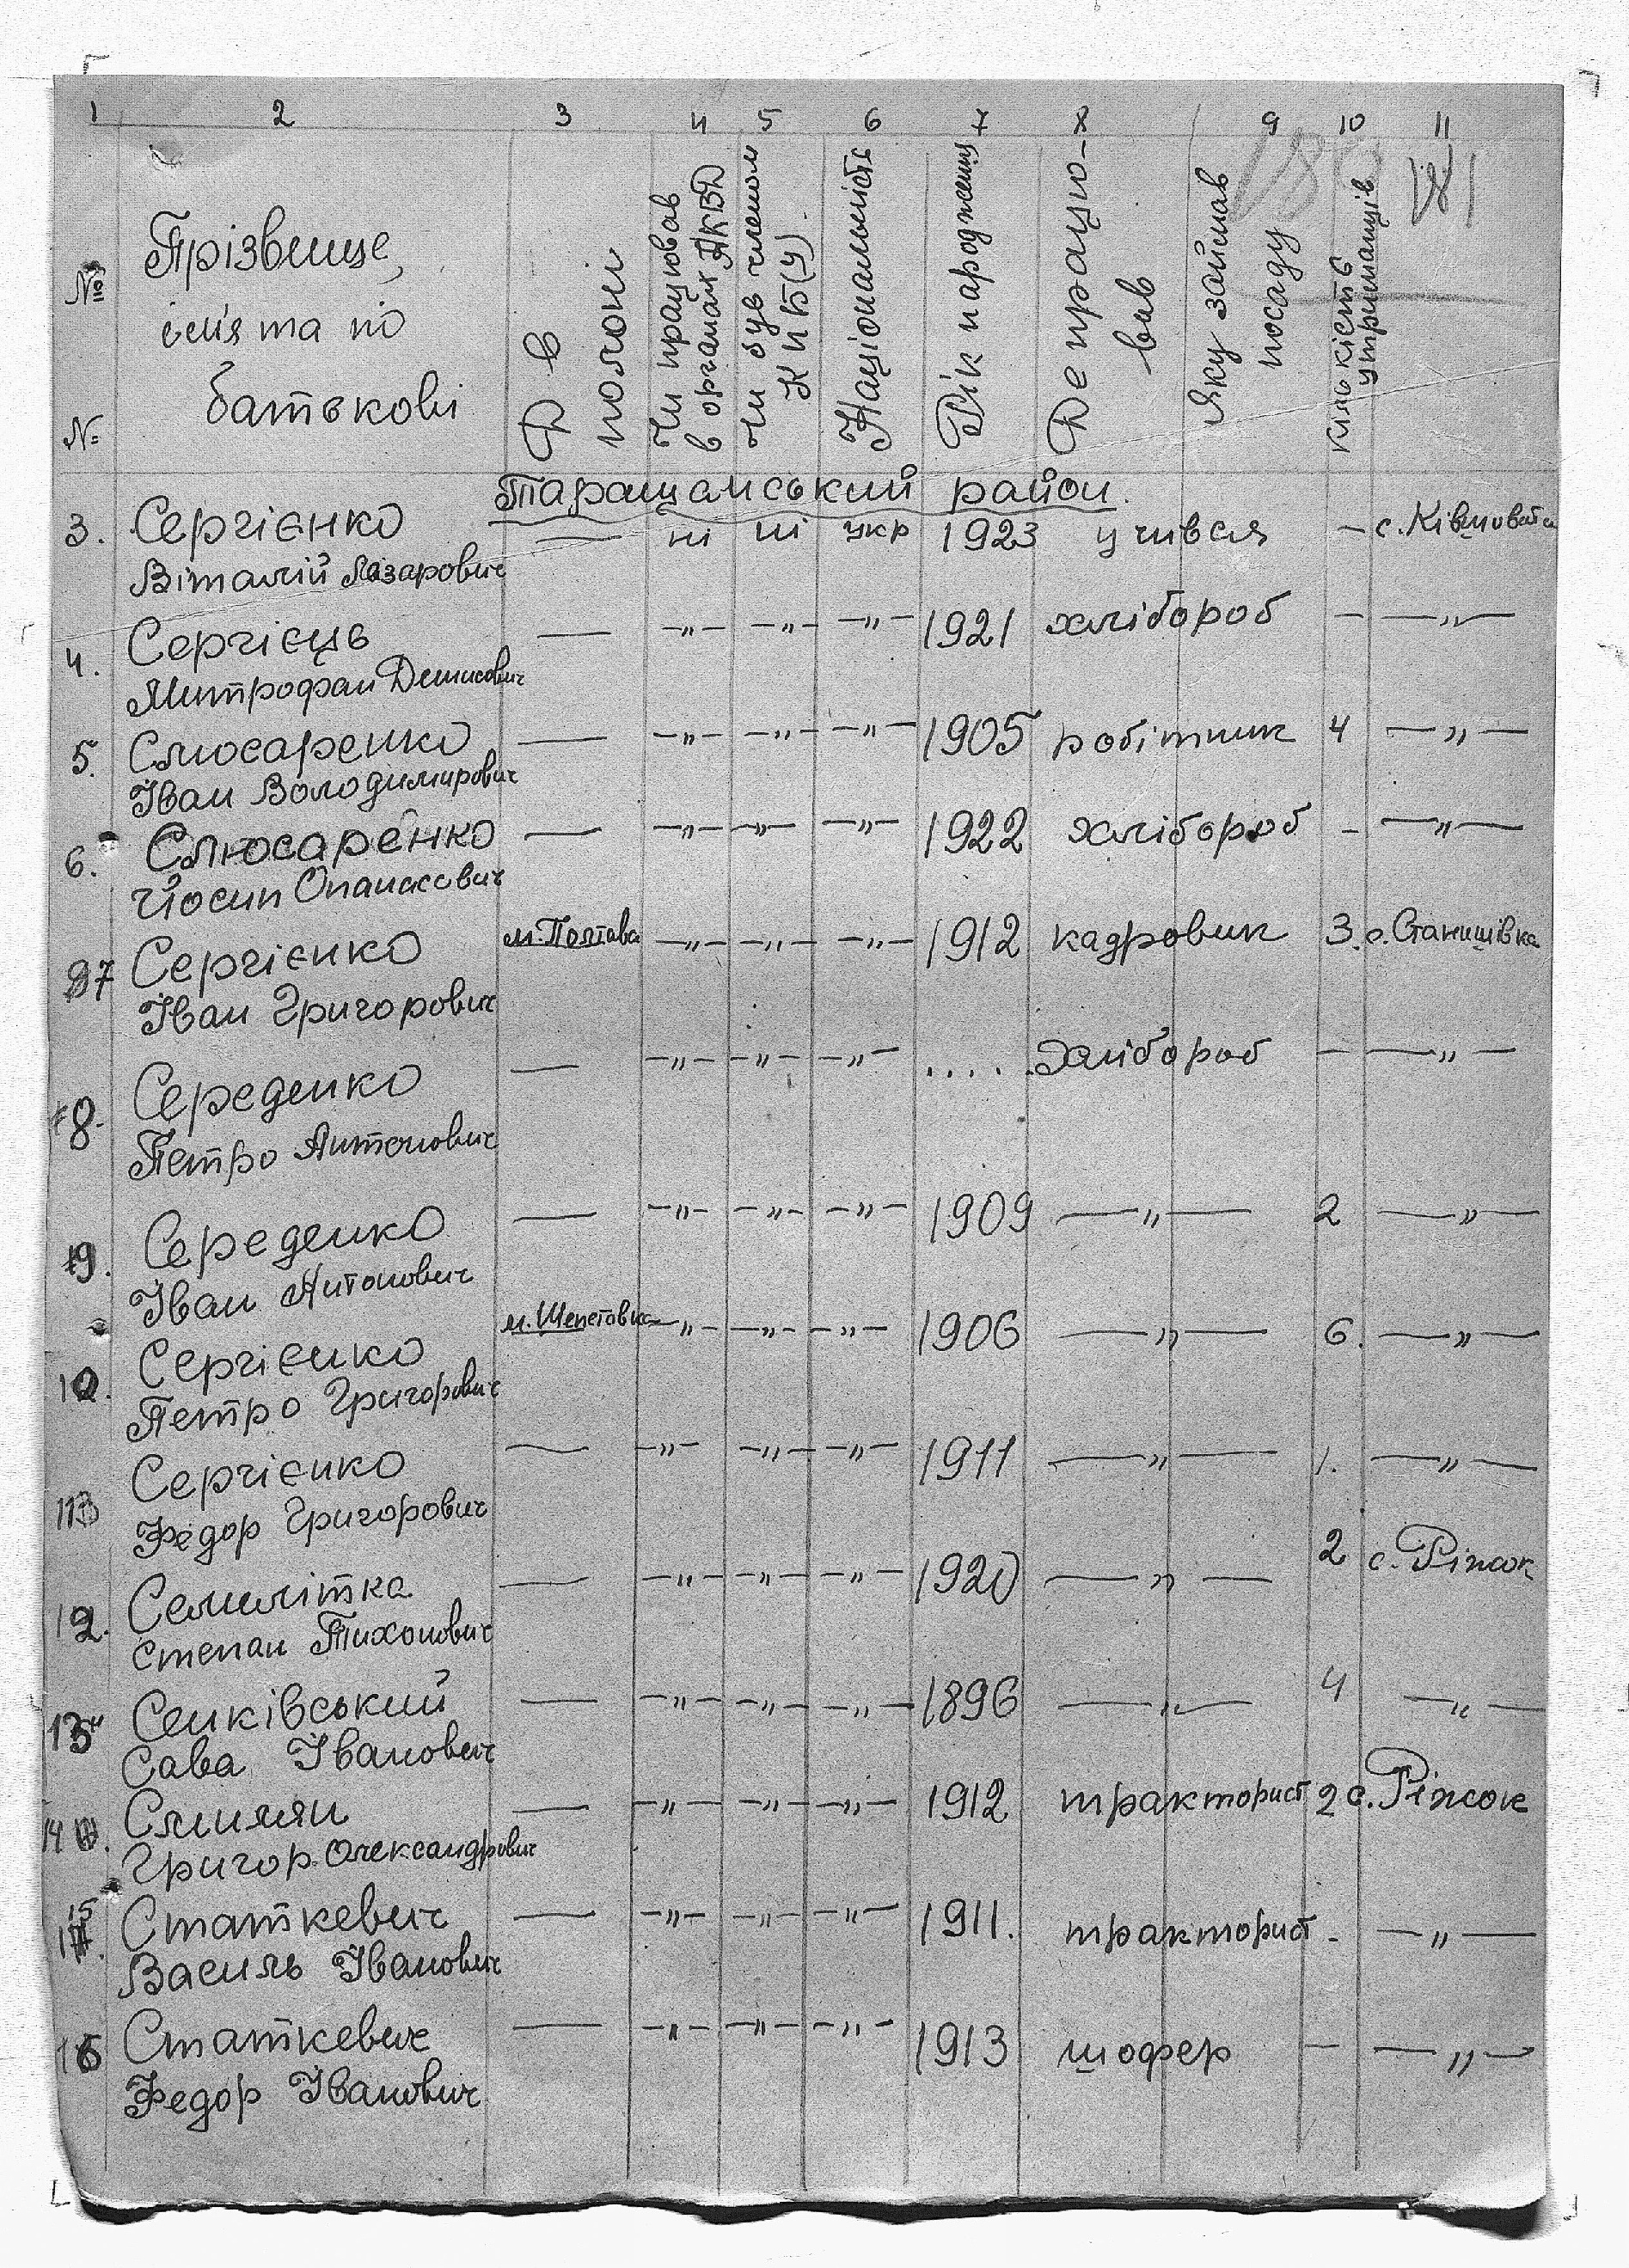 1 2 3 4 5 6 7 8 9 10 11
181
№№
Прізвище,
ім'я та по
батькові
Де в
полоні
Чи працював
в органах НКВД
Чи був членом
КПБ(У).
Національність
Рік народження
Де працю-
вав
Яку займав
посаду
Кількість
утриманців
№
Таращанський район.
3. Сергієнко — ні ні укр 1923 учився — с. Ківшовата
Віталій Лазарович
4. Сергієць — —"— —"— —"— 1921 хлібороб — —"—
Митрофан Денисович
5. Слюсаренко — —"— —"— —"— 1905 робітник 4 —"—
Іван Володимирович
6. Слюсаренко — —"— —"— —"— 1922 хлібороб - —"—
Йосип Опанасович
7 Сергієнко м. Полтава —"— —"— —"— 1912 кадровик 3. с. Станишівка
Іван Григорович
8. Середенко — —"— —"— —"— ..... хлібороб — —"—
Петро Антонович
9. Середенко — —"— —"— —"— 1909 —"— 2 —"—
Іван Антонович
10. Сергієнко м. Шепетівка —"— —"— —"— 1906 —"— 6. —"—
Петро Григорович
11 Сергієнко — —"— —"— —"— 1911 —"— 1. —"—
Федор Григорович
12. Семилітка — —"— —"— —"— 1920 —"— 2 с. Ріжок
Степан Тихонович
13 Сенківський — —"— —"— —"— 1896 —"— 4 —"—
Сава Іванович
14 — —"— —"— —"— 1912 тракторист 2 с. Ріжок
Григор. Олександрович
15 Статкевич — —"— —"— —"— 1911. тракторист - —"—
Василь Іванович
16 Статкевич — —"— —"— —"— 1913 шофер — —"—
Федор Іванович